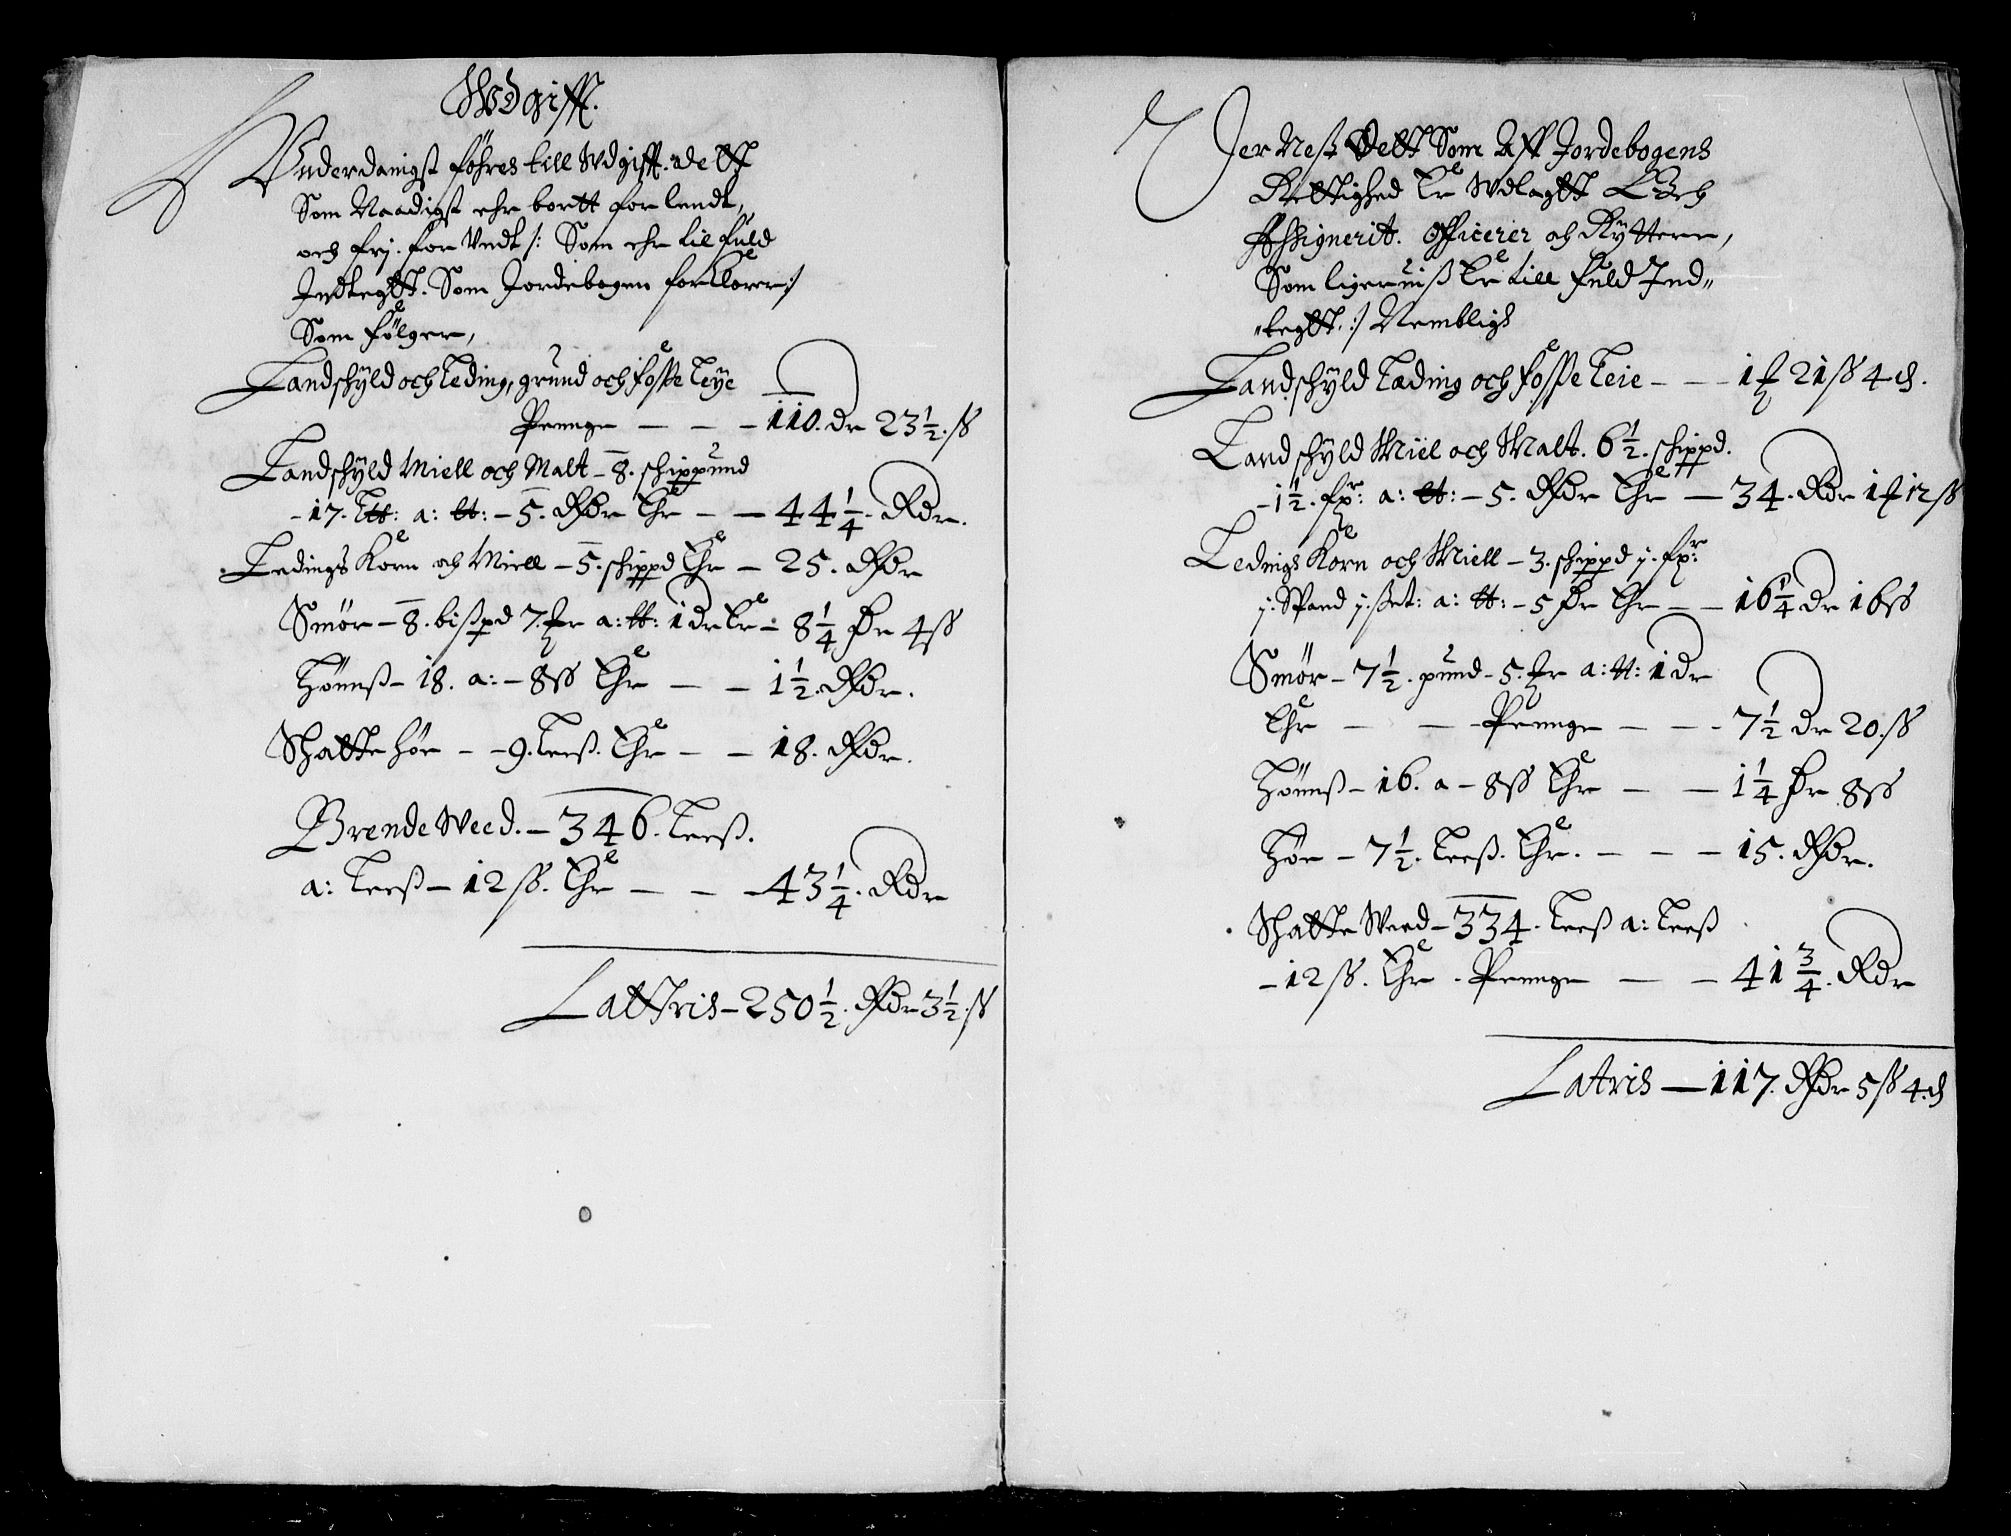 Wdgifft.
Underdanigst föhres till Wdgifft. dett
Som Naadigst ehr bortt forlendt,
och frj. for Undt /: Som ehr til fuld
Indtegtt. Som Jordebogen forklarer :/
Som følger,
Landschÿld och Leding, grund och fosse Leÿe
Penge — — – 110. dr 23½. ß
Landschÿld Miell och Malt – 8. schippund
– 17. Ltt: a: tt: – 5. Rdr Ehr — — 44¼. Rdr.
Ledings Korn och Miell – 5. schippd Ehr – 25. Rdr
Smör – 8. bißpd 7. mr a: tt: 1 dr Er – 8¼ dr 4ß
Hönnß – 18. a: – 8ß Ehr — – 1½. Rdr.
Schatte höe – – 9. Leß. Ehr – – 18. Rdr.
Brende Weed. – 346. Leeß.
a: Leeß – 12 ß. Ehr — – – 43¼. Rdr
Lattris – 250½. Rdr 3½. ß
Der Nest Dett Som Aff Jordebogens
Rettighed Er Wdlagtt Och
Assignerit. Officerer och Rÿttere,
Som ligeruiß Er till fuld Ind„
„tegtt. :/ Nembligh
Landschÿld Læding och fosse Leie – — – 1 ƒ 21 ß 4 d.
Landschÿld Miel och Malt. 6½. schippd.
– 1½. fpr: a: tt: – 5. Rdr Ehr — 34. Rdr 1 ƒ 12 ß
Ledings Korn och Miell – 3. schippd j. fpr:
j. Spand j. set: a: tt: – 5 dr Ehr — – 16¼ dr 16ß
Smör – 7½. pund – 5. mr a: tt: 1 dr
Ehr — – Penge — – – 7½ dr 20. ß
Hönnß – 16. a – 8ß Ehr — — 1¼ dr 8ß
Höe – 7½. Leeß. Ehr. – — – 15. Rdr.
Schatte Weed – 334. Leeß a: Leeß
– 12 ß. Ehr. Penge — — 41¾. Rdr
Latris — 117. Rdr 5 ß 4. d